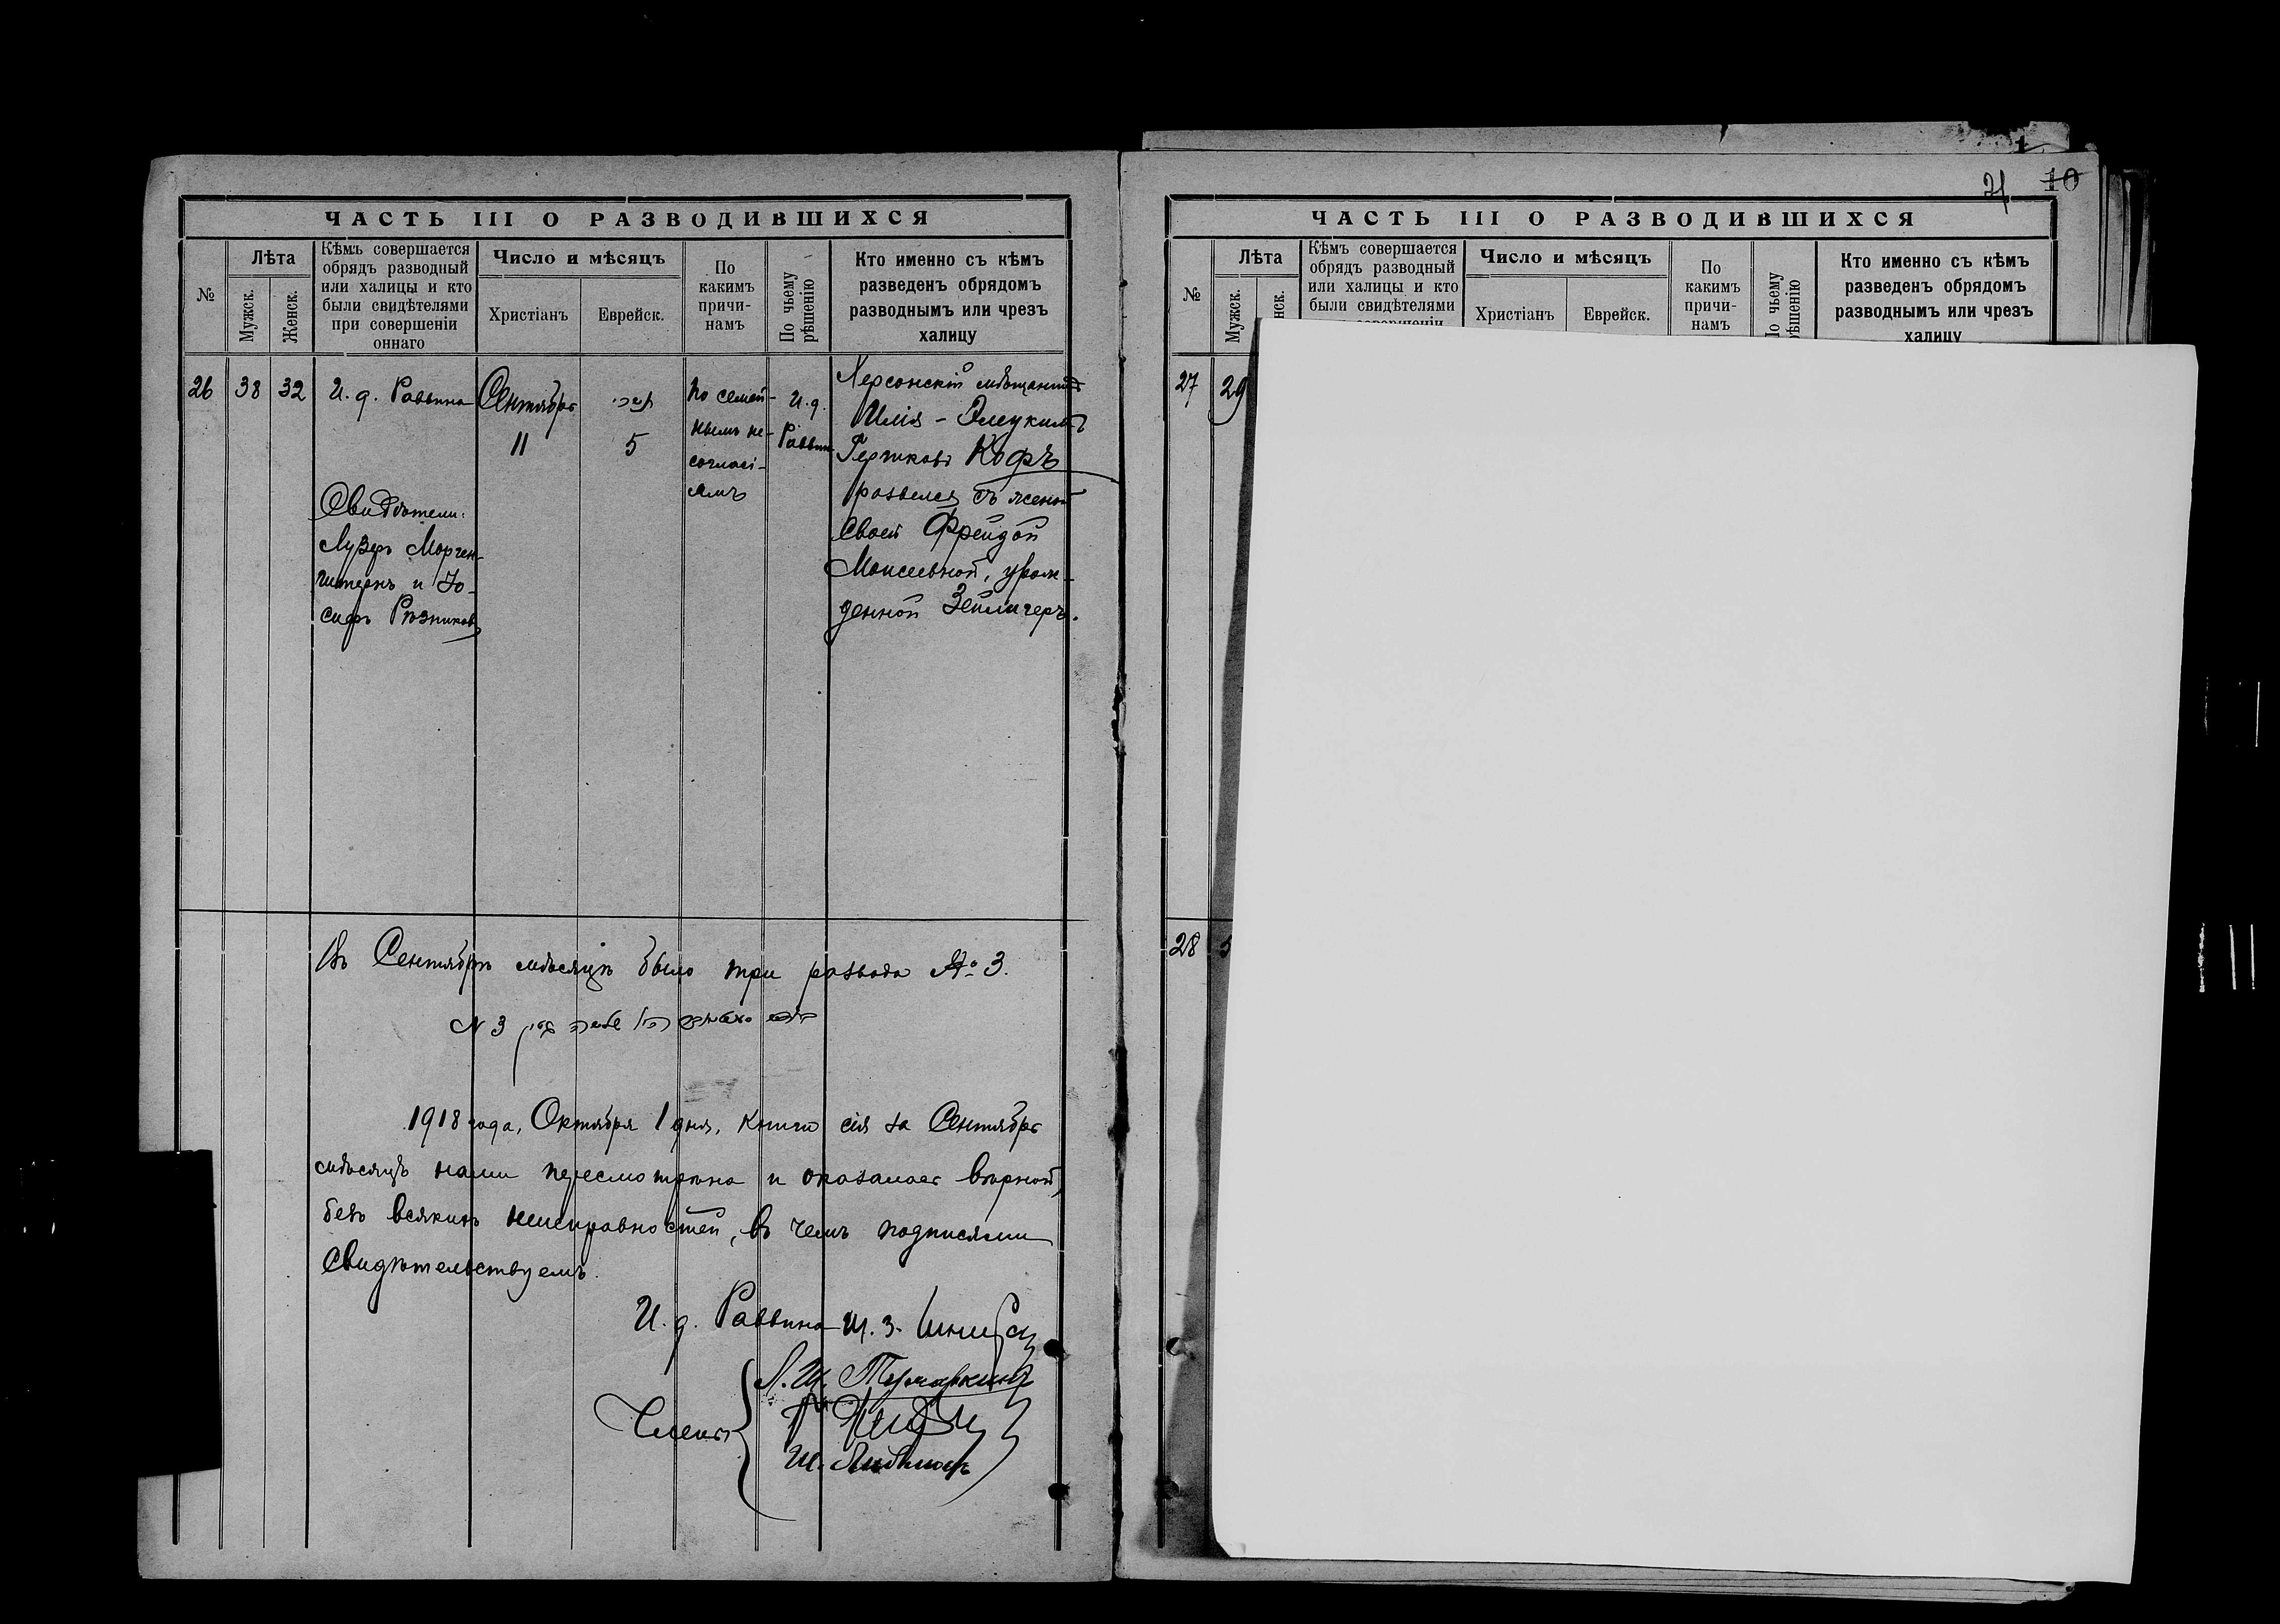 1
21 10
ЧАСТЬ III О РАЗВОДИВШИХСЯ
№
Лѣта
Мужск.
Женск.
Кѣмъ совершается
обрядъ разводный
или халицы и кто
были свидѣтелями
при совершеніи
оннаго
Число и мѣсяцъ
Христіанъ
Еврейск.
По
какимъ
причи-
намъ
По чьему
рѣшенію
Кто именно съ кѣмъ
разведенъ обрядомъ
разводнымъ или чрезъ
халицу
26
38
32
И. д. Раввина
Свидѣтели:
Лузеръ Морген-
штернъ и Іо-
сифъ Рѣзниковъ
Сентябрь
11
5
По семей-
нымъ не-
согласі-
ямъ
И. д.
Раввин
Херсонскій мѣщанинъ
Илія-
Гершковъ Кофъ
развелся съ женой
своей Фрейдой
Моисеевной, урож-
денной Зейлигеръ.
Въ Сентябрѣ мѣсяцѣ было три развода № 3.
N 3
1918 года, Октября 1 дня, книга сія за Сентябрь
мѣсяцъ нами пересмотрѣна и оказалась вѣрной,
безъ всякихъ неисправностей, въ чемъ подписями
свидѣтельствуемъ.
И. д. Раввина Ш. З.
Члены
ЧАСТЬ III О РАЗВОДИВШИХСЯ
№
Лѣта
Мужск.
нск.
Кѣмъ совершается
обрядъ разводный
или халицы и кто
были свидѣтелями
Число и мѣсяцъ
Христіанъ
Еврейск.
По
какимъ
причи-
намъ
По чьему
рѣшенію
Кто именно съ кѣмъ
разведенъ обрядомъ
разводнымъ или чрезъ
халицу
27
29
28
5